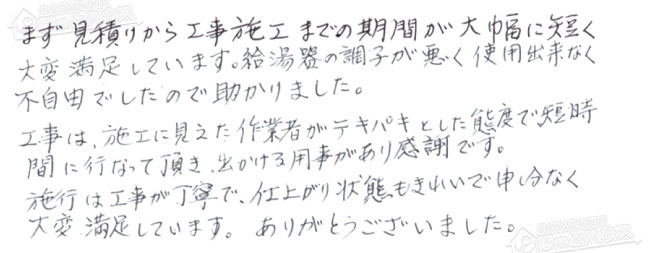 まず見積りから工事施工までの期間が大幅に短く
大変満足しています。給湯器の調子が悪く使用出来なく
不自由でしたので助かりました。
工事は、施工に見えた作業者がテキパキとした態度で短時
間に行なって頂き、出かける用事があり感謝です。
施行は工事が丁寧で、仕上がり状態もきれいで申し分なく
大変満足しています。 ありがとうございました。